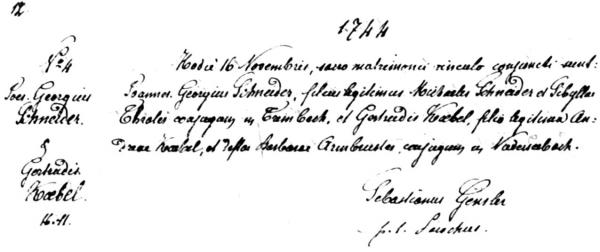 12
1744
No 4
Joes. Georgius
Schneider.
&
Gertrudis
Koebel.
16.11.
Hodie 16 Novembris, sacro matrimonii vinculo conjuncti sunt
Joannes Georgius Schneider, filius legitimus Michaelis Schneider et Sibyllae
conjugum in Trimbach, et Gertrudis Koebel, filia legitima An-
dreae Koebel, et Barbarae Armbruster, conjugum in
Sebastianus Gensler
p. t. Parochus.